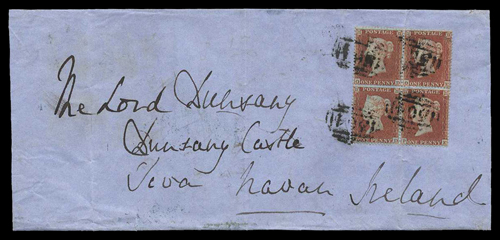 POSTAGE POSTAGE
ONE PENNY ONE PENNY
POSTAGE POSTAGE
ONE PENNY ONE PENNY
The Lord Dunsany
Dunsany Castle
Navan Ireland